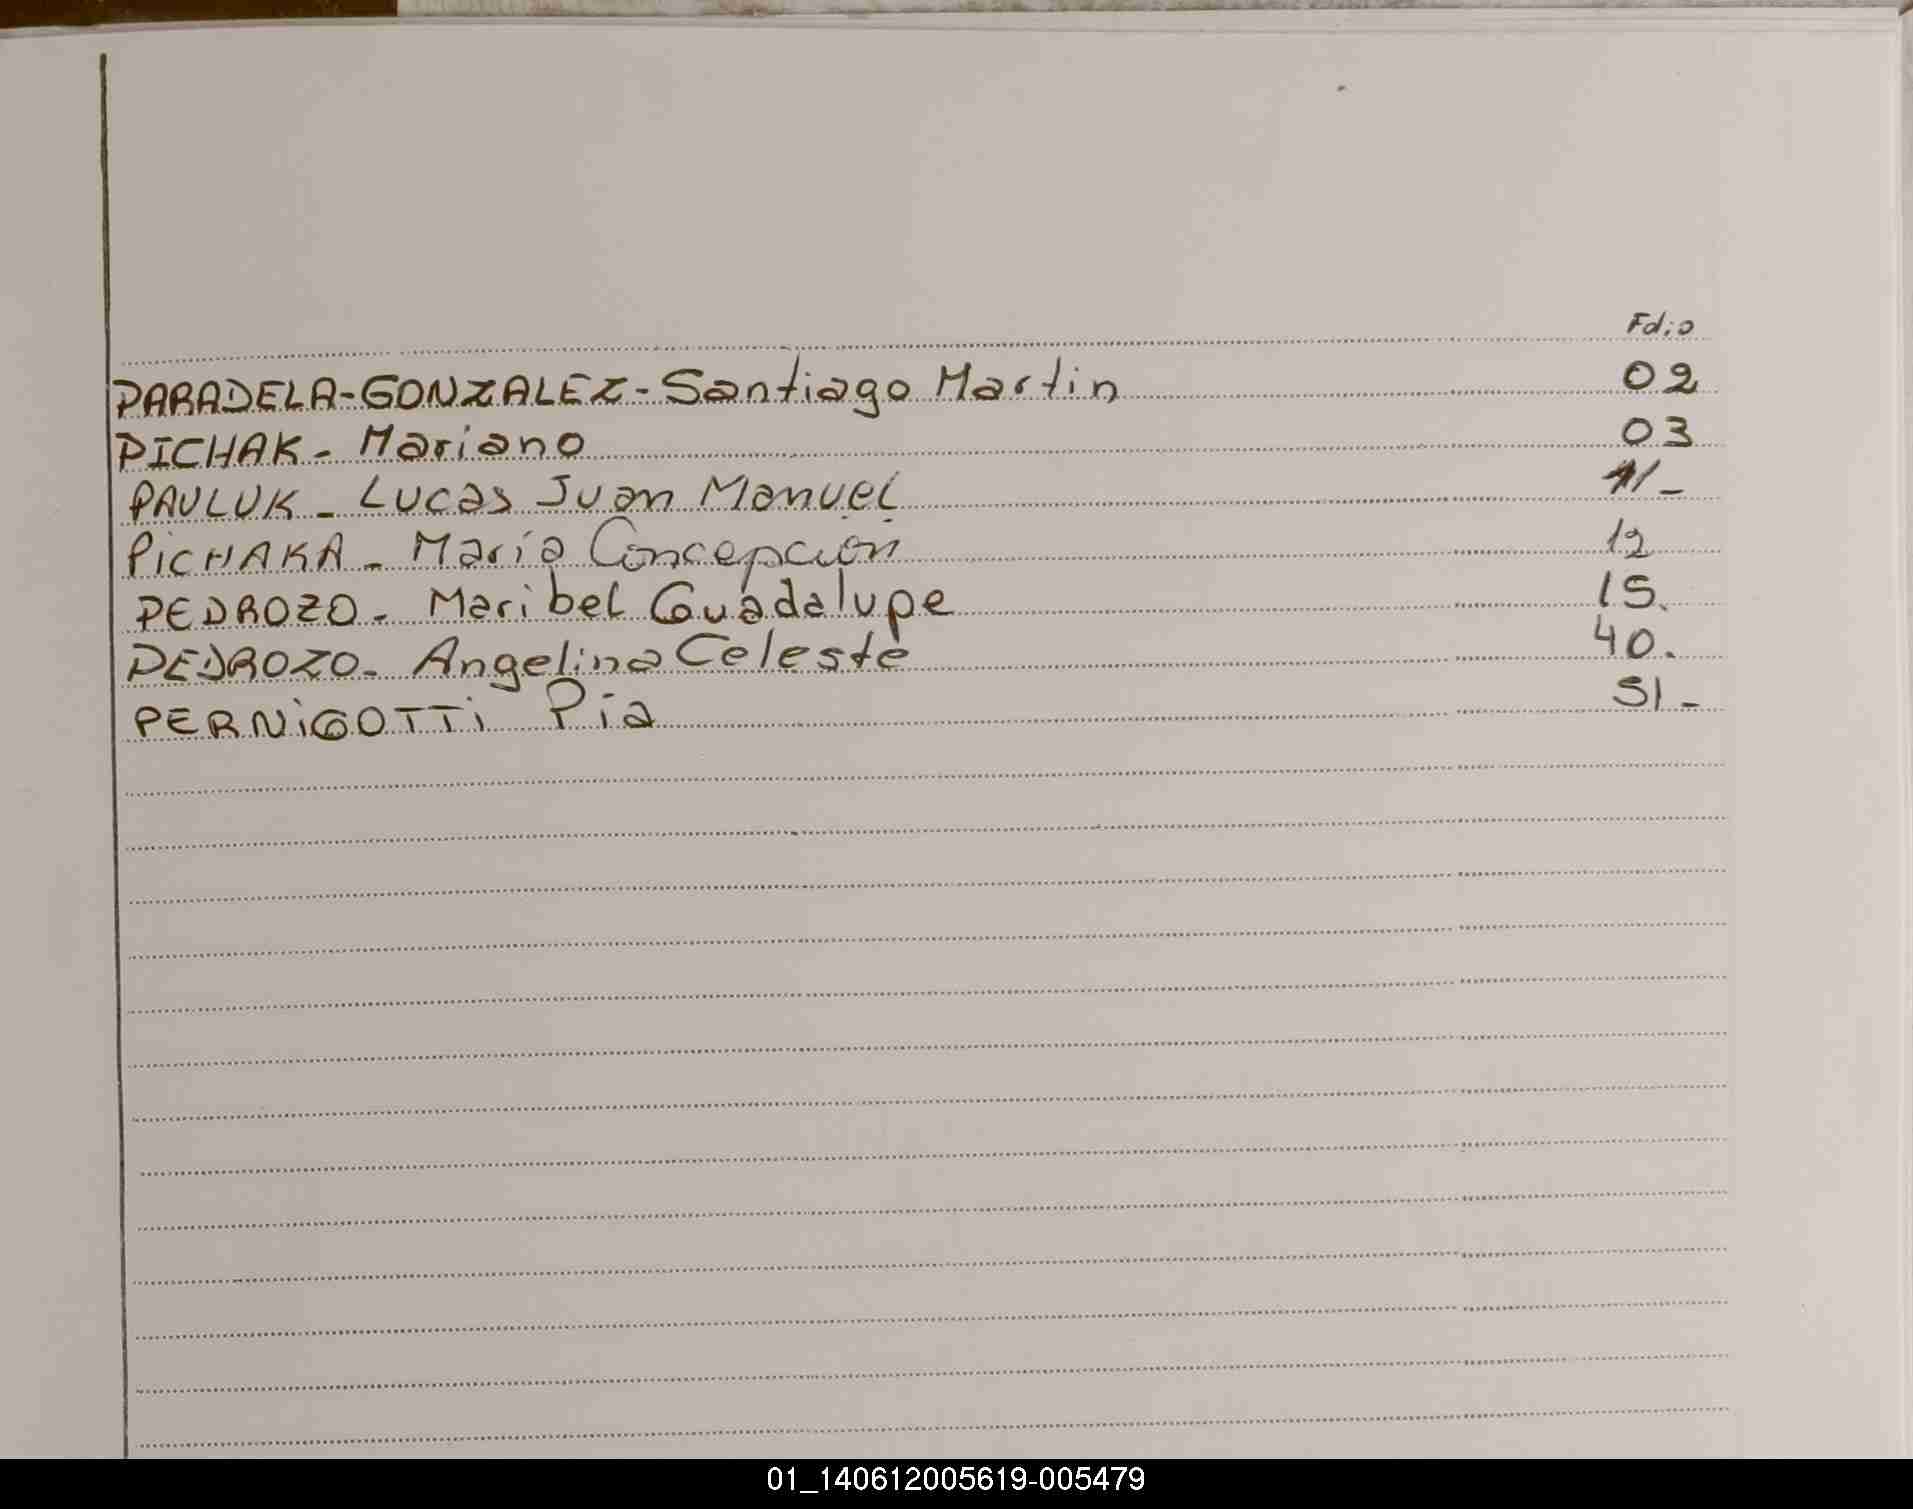 Folio
PARADELA-GONZALEZ-Santiago Martin 02
PICHAK - Mariano 03
PAULUK - Lucas Juan Manuel 11-
PiCHAKA - María Concepción 12
PEDROZO - Maribel Guadalupe 15.
PEDROZO - Angelina Celeste 40.
PERNiGOTTi Pía 51-
01_140612005619-005479